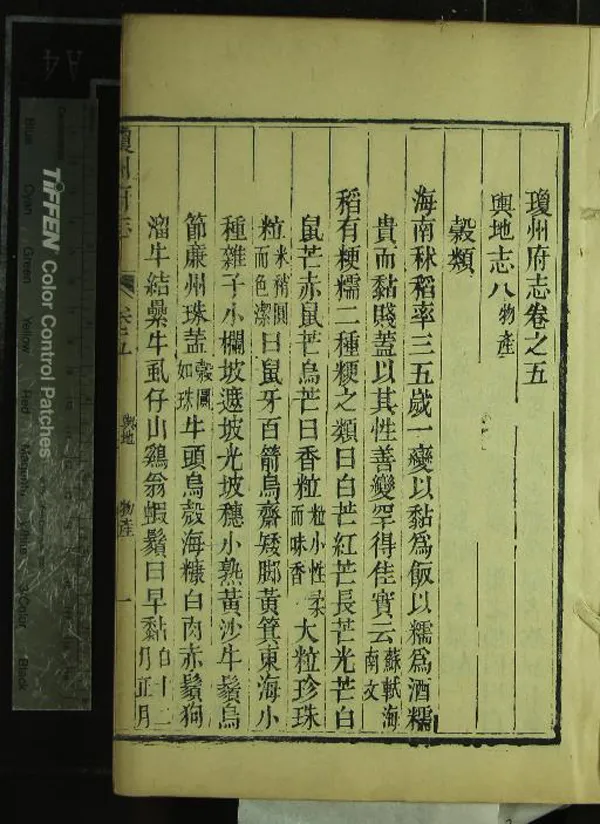 瓊州府志卷之五
輿地志八 物產
穀類
海南秫稻率三五歲一變以黏爲飯以糯爲酒糯
貴而黏賤蓋以其性善變罕得佳實云 蘇軾海南文
稻有粳糯二種粳之類曰白芒紅芒長芒光芒白
鼠芒赤鼠芒烏芒曰香粒 粒小性柔而味香 大粒珍珠
粒 米稍圓而色潔 曰鼠牙百箭烏齋矮脚黃箕東海小
種雜子小欄坡遮坡光坡穗小熟黃沙牛鬚烏
節廉州珠蓋 穀圓如珠 牛頭烏殼海糠白肉赤鬚狗
溜牛結纍牛虱仔山鷄翁蝦鬚曰早黏 自十二月正月
瓊州府志 卷之五 輿地 物產 一
TIFFEN Color Control Patches
Blue Cyan Green Yellow Red Magenta White 3-Color Black
A4